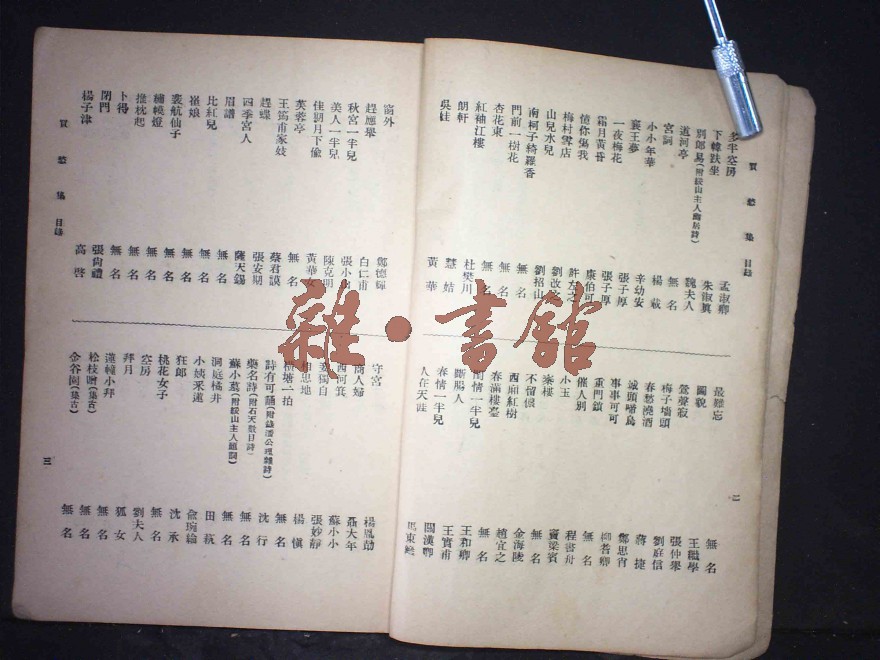 賀愁集 目錄
多半空房 孟淑卿
下幃趺坐 朱淑真
別郎易(附綏山主人幽居詩) 魏夫人
道河亭 無名
宮詞 楊載
小小年華 辛幼安
襄王夢 張子厚
一夜梅花 張子厚
霜月黃昏 康伯可
憶你傷我 許左之
梅村雪店 劉改之
山兒水兒 劉招山
南柯子綺羅香 無名
門前一樹花 無名
杏花東 無名
紅袖江樓 杜樊川
朗軒 慧姑
吳娃 黃華
最難忘 無名
圖貌 王繼學
鶯聲寂 張仲舉
梅子墻頭 劉庭信
春愁澆酒 蔣捷
城頭啼烏 鄭思肖
事事可可 柳耆卿
重門鎮 無名
催人別 程書舟
小玉 竇梁賓
秦樓 無名
不留偎 金海陵
西廂紅樹 趙宜之
春滿樓臺 無名
閨情一半兒 王和卿
斷腸人 王實甫
春情一半兒 關漢卿
人在天涯 馬東籬
二
窗外 鄭德輝
趕應舉 白仁甫
秋宮一半兒 張小
美人一半兒 陳克明
佳期月下偷 黃華女
芙蓉亭 無名
王筠甫家妓 蔡君謨
趕蝶 張安期
四季宮人 薩天錫
眉譜 無名
比紅兒 無名
崔娘 無名
裴航仙子 無名
繡幌燈 無名
推枕起 無名
卜得 無名
閉門 張向禮
楊子津 高啓
賀愁集 目錄
守宮 楊胤勛
商人婦 聶大年
西河箕 蘇小小
獨自 張妙靜
相思地 楊慎
橫塘二拍 無名
詩有可誦(附錄潘公理雜詩) 沈行
藥名詩(附石天數目詩) 無名
蘇小墓(附綏山主人題詞) 無名
洞庭橘井 田藝
小姨采蓮 俞琬綸
狂郎 沈承
桃花女子 無名
空房 劉夫人
拜月 狐女
蓮幢小拜 無名
松枝贈(集古) 無名
金谷園(集古) 無名
三
雜·書館